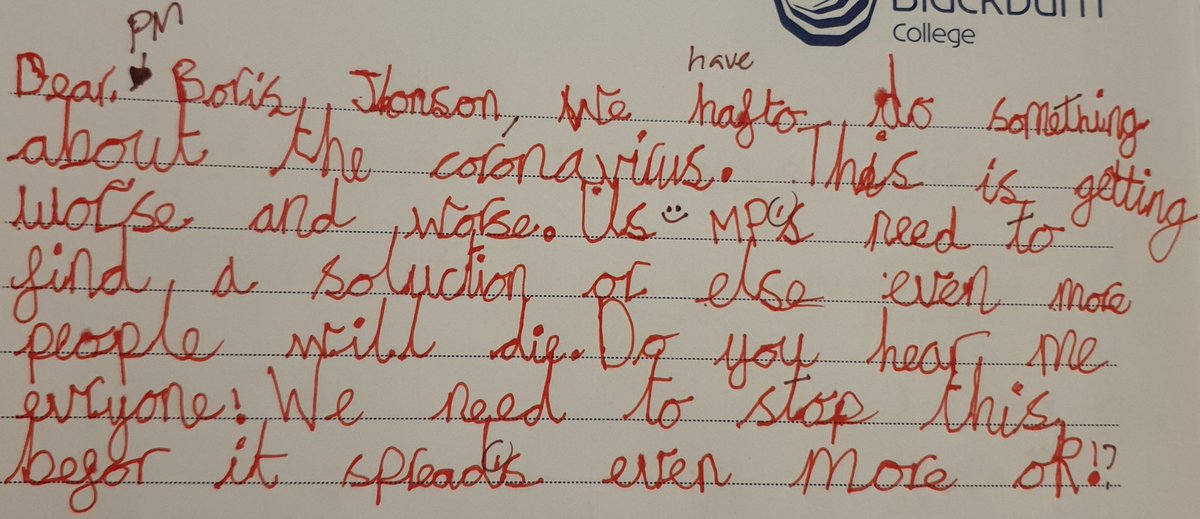 Blackburn
College
PM
Dear Boris, Jhonson, We hafto do something
have
about the coronavirus. This is getting
worse and worse. Us MP's need to
find a soluction or else even more
people will die. Do you hear me
evryone! We need to stop this
befor it spread's even more ok!?